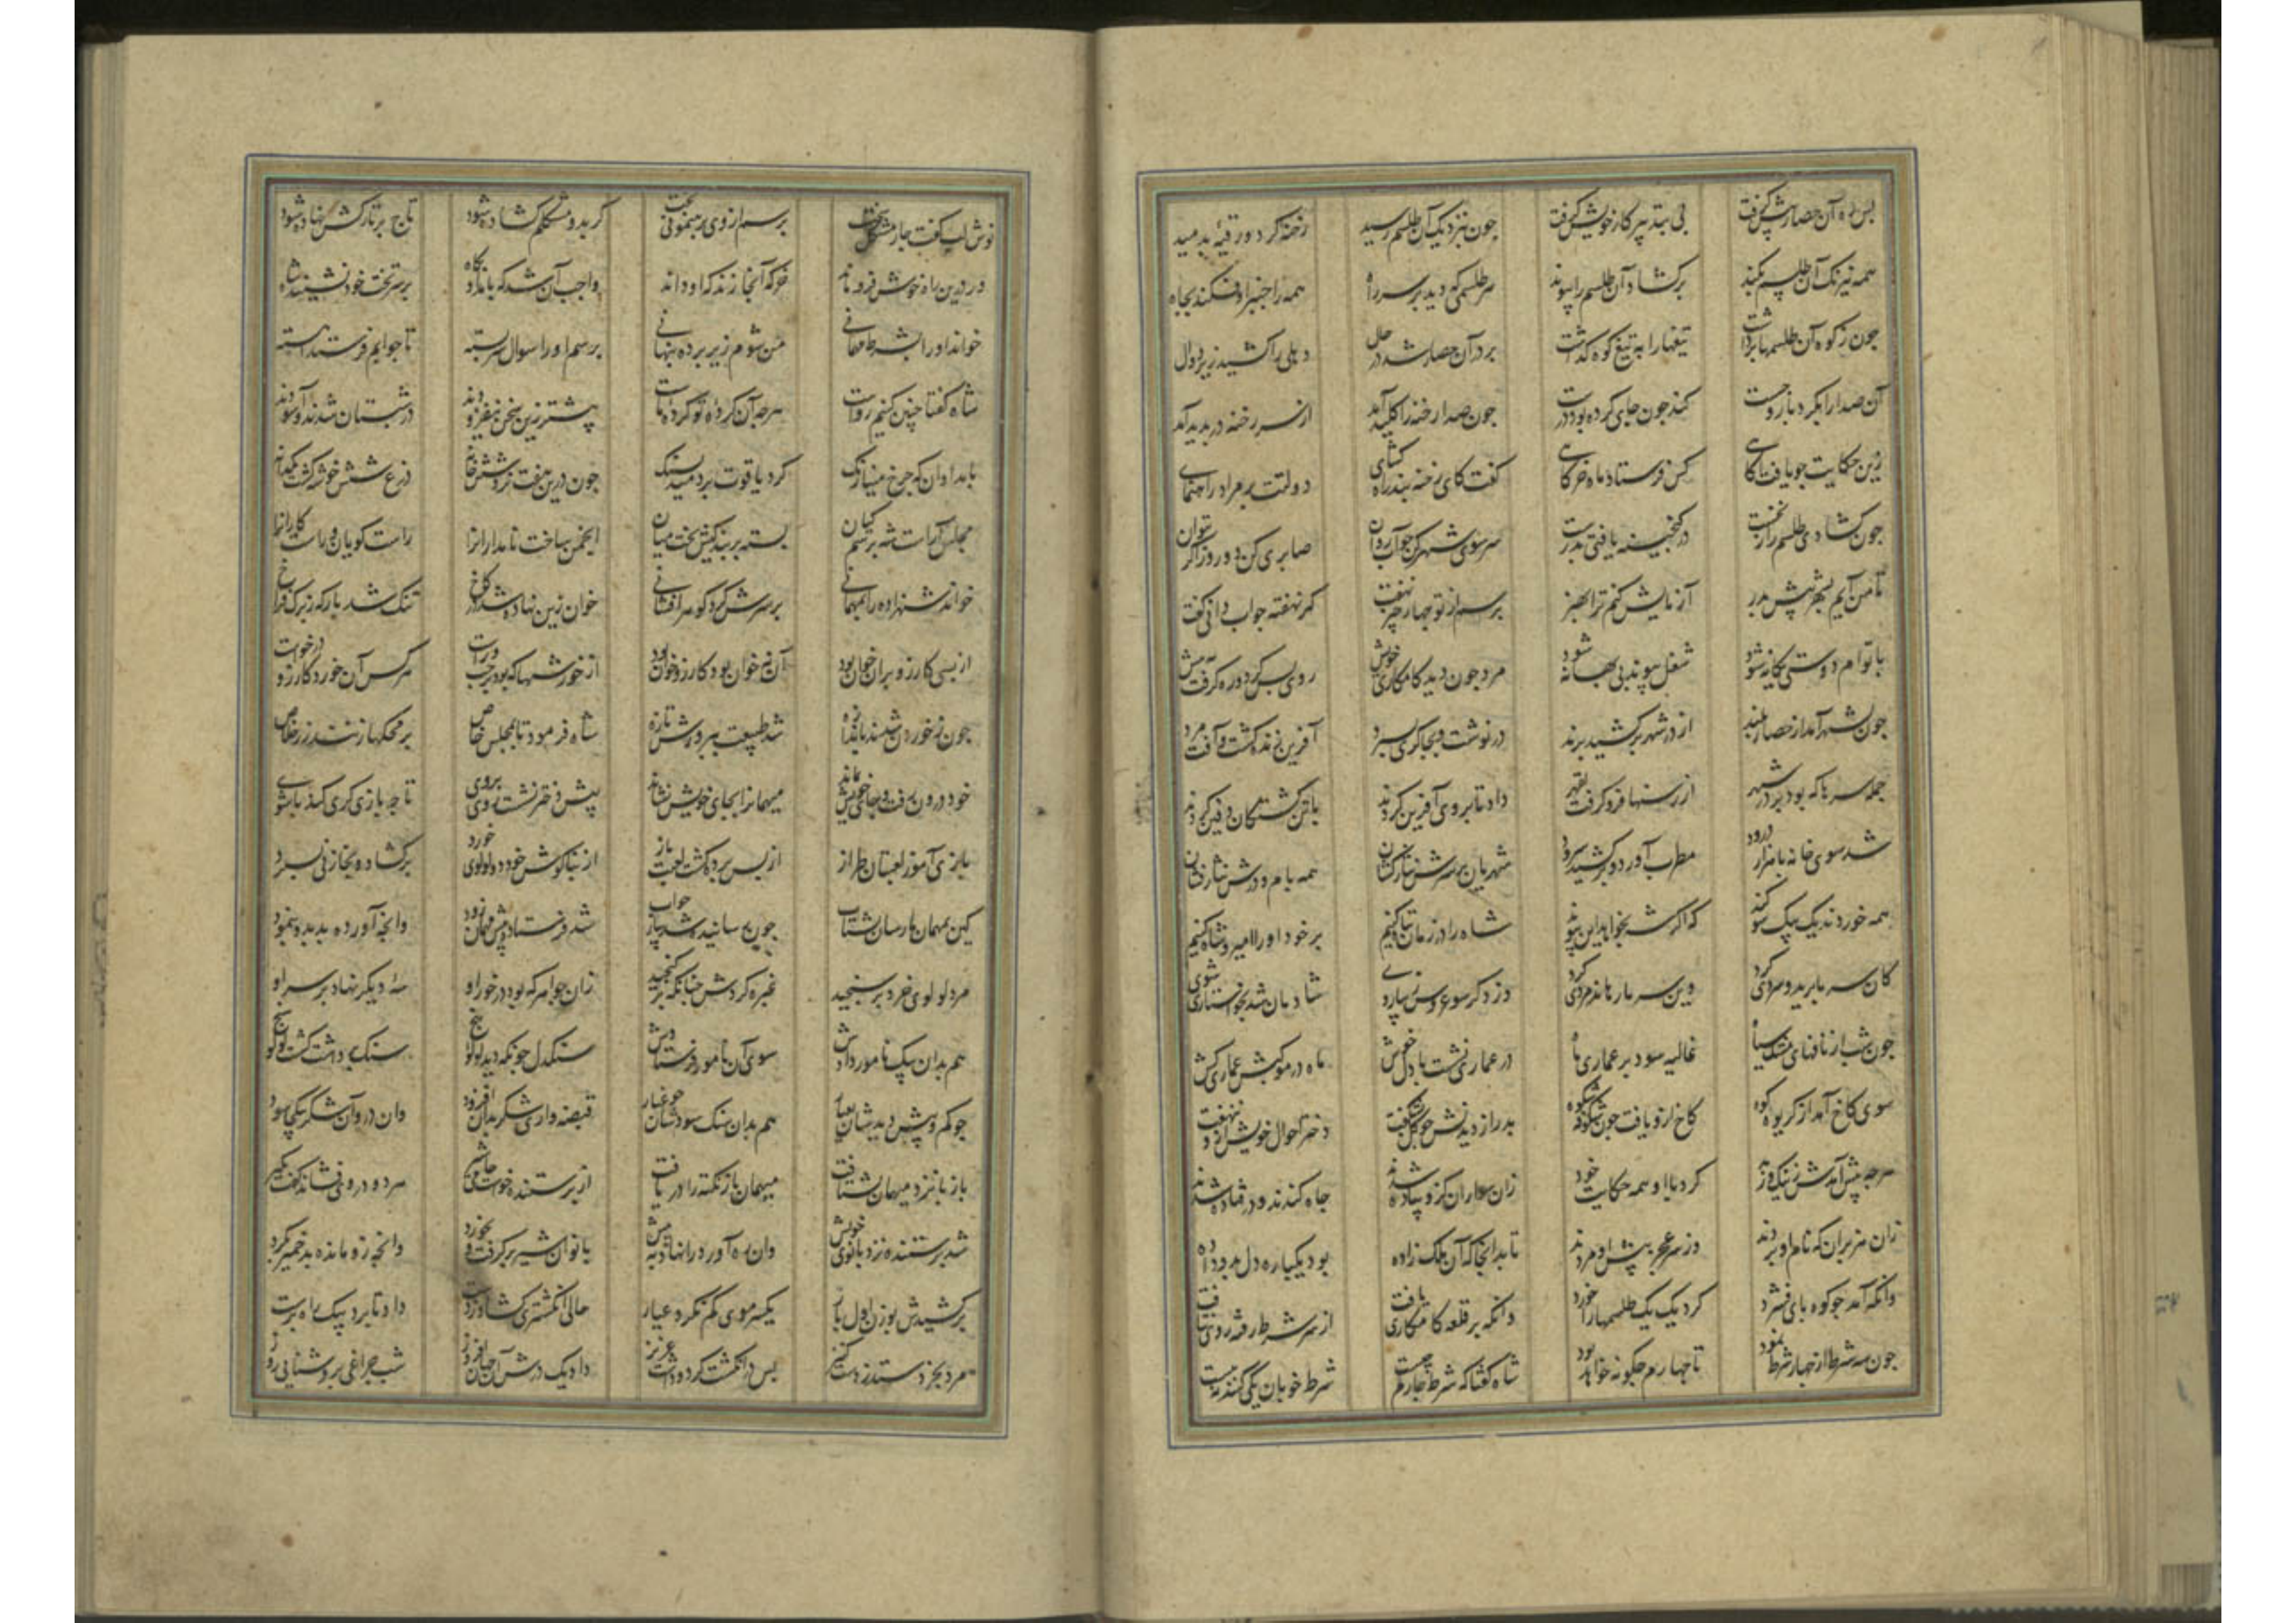 پس ره آن حصار پیش گرفت پی تدبیر کار خویش گرفت چون بنزدیک آن طلسم رسید رخنه کرد و رقیه بدمید
همه نیرنک آن طلسم بکند برکشاد آن طلسم را پیوند هر طلسمی که دید بر سر راه همه را چنبر اوفکند بچاه
چون ز کوه آن طلسمها برداشت تیغها را به تیغ کوه کذاشت بر در آن حصار شد در حال دهلی را کشید زیر دوال
آن صدا را بکرد بارو جست کند چون جای کرده بود درست چون صدا رخنه را کلید آمد از سر رخنه در پدید آمد
زین حکایت چو یافت آکاهی کس فرستاد ماه خرکاهی کفت کای رخنه بند راه کشای دولتت بر مراد راهنمای
چون کشادی طلسم را ز نخست در کنجینه یافتی بدرست سر سوی شهر کن چو آب روان صابری کن دو روز اکر بتوان
تا من آیم بشهر پیش پدر آزمایش کنم ترا بهنر پرسم از تو چهار چیز نهفت کر نهفته جواب دانی کفت
با توام دوستی یکانه شود شغل پیوند بی بهانه شود مرد چون دید کامکاری خویش روی پس کرد و ره کرفت به پیش
چون بشهر آمد از حصار بلند از در شهر برکشید پرند در نوشت و بچاکری بسپرد آفرین زنده کشت و آفت مرد
جمله سرها که بود بر در شهر از رسنها فرو کرفت بقهر داد تا بر وی آفرین کردند با تن کشتکان دفین کردند
شد سوی خانه با هزار درود مطرب آورد و برکشید سرود شهریان بر سرش نثار کنان همه بام و درش نکار کنان
همه خوردند یک بیک سوکند که اکر شه نخواهد این پیوند شاه را در زمان تباه کنیم بر خود او را امیر و شاه کنیم
کان سر ما برید و سردی کرد وین سر ما رهاند و مردی کرد شادمان شد بخواستاری شوی
چون شب از نافهای مشک سیاه غالیه سود بر عماری ماه در عماری نشست با دل خوش ماه در موکبش عماری کش
سوی کاخ آمد از کریوه کوه کاخ ازو یافت چون شکوفه شکوه پدر از دیدنش چو کل بشکفت دختر احوال خویش ازو ننهفت
هرچه پیش آمدش ز نیک و ز بد کرد با او همه حکایت خود زان سواران کزو پیاده شدند چاه کندند و در فتاده شدند
زان هزبران که نام او بردند وز سر عجز پیش او مردند تا بدانجا که آن ملک زاده بود یکباره دل بدو داده
وانکه آمد چو کوه پای فشرد کرد یک یک طلسمها را خرد وانکه بر قلعه کامکاری یافت از سر شرط رفته روی نتافت
چون سه شرط از چهار شرط نمود تا چهارم چکونه خواهد بود شاه کفتا که شرط چارم چیست شرط خوبان یکی کنند نه بیست
نوش لب کفت چار مشکل سخت پرسم از وی برهنمونی بخت کر بدو مشکلم کشاده شود تاج بر تارکش نهاده شود
ور درین راه خرش فرو ماند خرکه آنجا زند که او داند واجب آن شد که بامداد پکاه بر سر تخت خود نشیند شاه
خواند او را بشرط مهمانی من شوم زیر پرده پنهانی پرسم او را سوال سربسته تا جوابم فرستد آهسته
شاه کفتا چنین کنیم رواست هرچه آن کرده تو کرده ماست پیشتر زین سخن نیفزودند در شبستان شدند و آسودند
بامدادان که چرخ مینا رنک کرد یاقوت بر دمید بسنک
مجلس آراست شه برسم کیان بسته بر بندکیش بخت میان انجمن ساخت نامداران را راست کویان و راستکاران را
خواند شهزاده را بمهمانی بر سرش کرد کوهر افشانی خوان زرین نهاده شد در کاخ تنک شد بارکه ز برک فراخ
از بسی کارزو بران خوان بود آن نه خوان بود کارزو خوان بود از خورشها که بود بر چپ و راست هر کس آن خورد کارزو درخواست
چون ز خوردن شدند باندازه شد طبیعت بپرورش تازه شاه فرمود تا بمجلس خاص بر محکها زنند زر خلاص
خود درون رفت و جای خویش بماند میهمان را بجای خویش نشاند پیش دختر نشست روی بروی تا چه بازی کری کند با شوی
بازی آموز لعبتان طراز از پس پرده کشت لعبت باز از بناکوش خود دو لولوی خورد برکشاد و بخازنی بسپرد
کین بمهمان ما رسان بشتاب چون رسانیده شد بیار جواب شد فرستاده پیش مهمان زود وانچه آورده بد بدو بنمود
مرد لولوی خرد بر سنجید عبره کردش چنانکه بر کنجید زان جواهر که بود در خور او سه دیکر نهاد بر سر او
هم بدان پیک نامور دادش سوی آن نامور فرستادش سنکدل چونکه دید لولو پنج سنک برداشت کشت لولو سنج
چو کم و بیش دیدشان بعیار هم بدان سنک سودشان چو غبار قبضه واری شکر بران افزود وان در و آن شکر بیکجا سود
باز با نزد میهمان بشتافت میهمان باز نکته را دریافت از پرستنده خواست جامی شیر هر دو در وی فشاند کفت بکیر
شد پرستنده نزد بانوی خویش وان ره آورد را نهاد به پیش بانو آن شیر بر کرفت و بخورد وانچه زو مانده بد خمیر بکرد
برکشیدش بوزن اول بار یک سر موی کم نکرد عیار حالی انکشتری کشاد ز دست داد تا برد پیک راه پرست
مرد بخرد ستد ز دست کنیز پس در انکشت کرد و داشت عزیز داد یک در جهان افروز شب چراغی بروشنایی روز